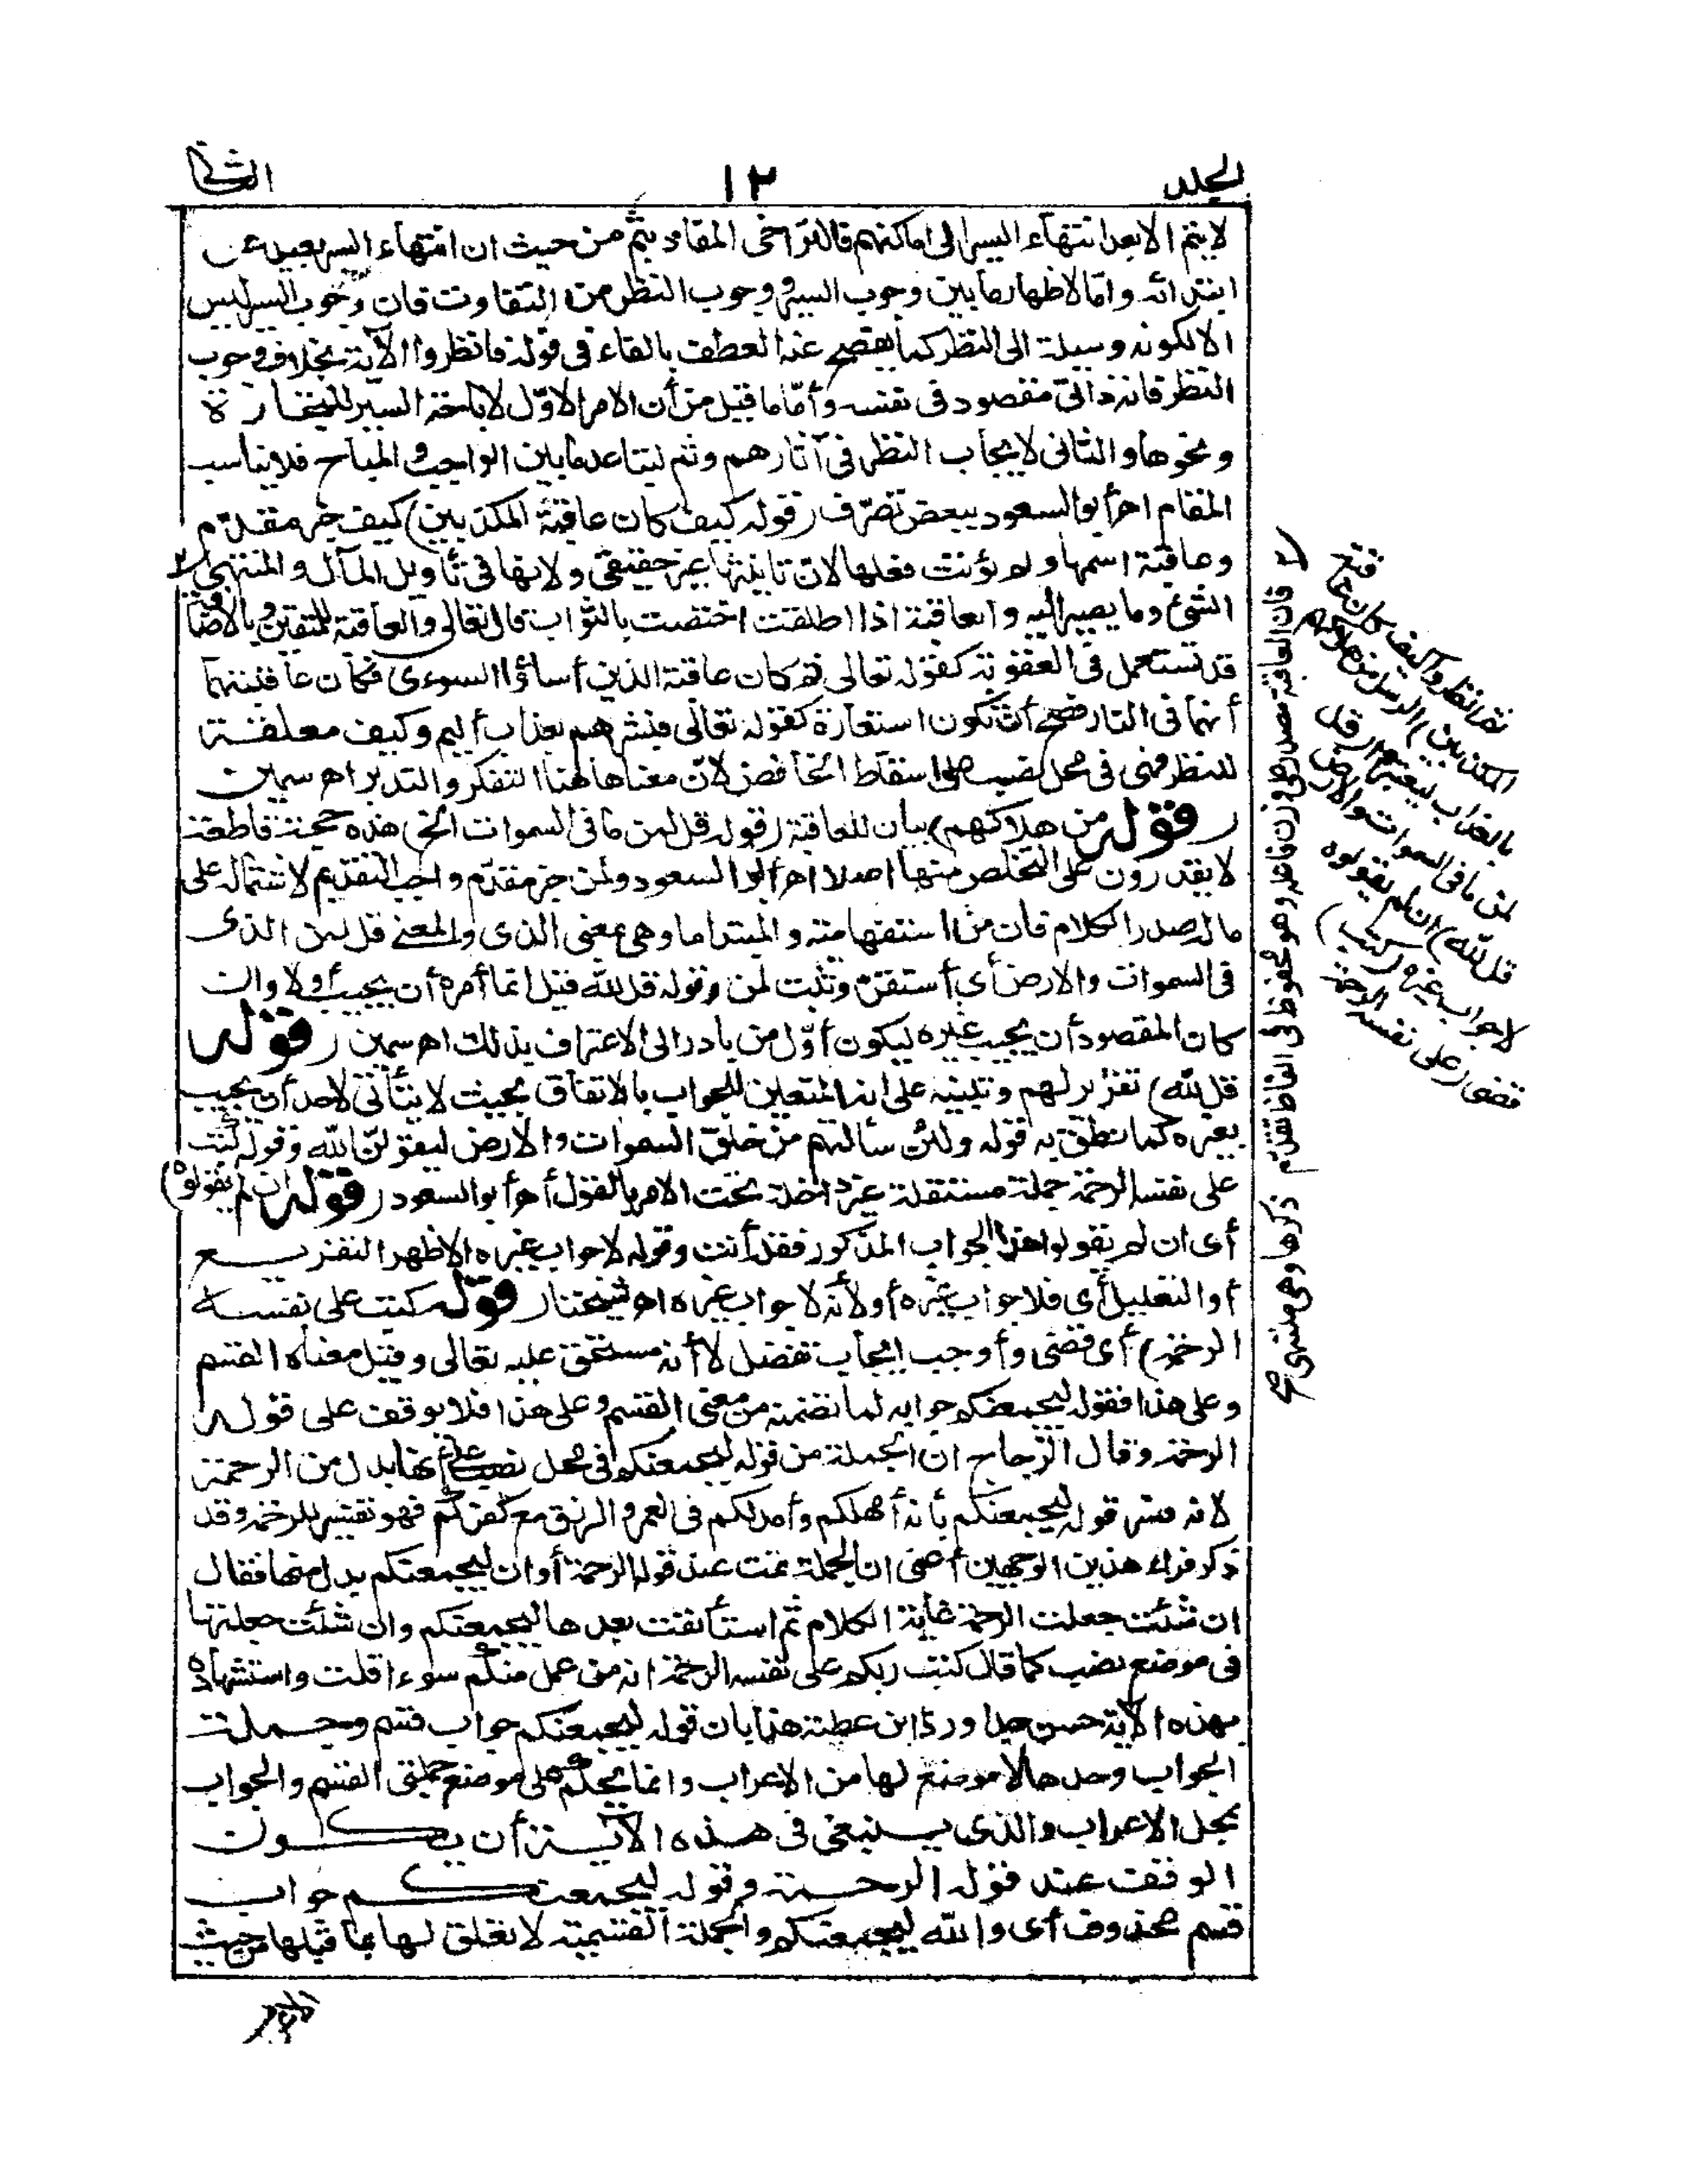 الجلد
١٢
الثانى
لا يتم الا بعد انتهاء السير الى اماكنهم فالتراخى المفاد بثم من حيث ان انتهاء السير بعيد عن
ابتدائه واما لاظهار ما بين وجوب السير ووجوب النظر من التفاوت فان وجوب السير ليس
الا لكونه وسيلة الى النظر كما يفصح عنه العطف بالفاء فى قوله فانظروا الآية بخلاف وجوب
النظر فانه ذاتىّ مقصود فى نفسه وأمّا ما قيل من أن الامر الاوّل لاباحة السير للتجارة
ونحوها والثانى لايجاب النظر فى آثارهم وثم لتباعد ما بين الواجب والمباح فلا يناسب
المقام اهـ أبو السعود ببعض تصرّف (قوله كيف كان عاقبة المكذبين) كيف خبر مقدّم
وعاقبة اسمها ولم يؤنث فعلها لانّ تأنيثها غير حقيقى ولانها فى تأويل المآل والمنتهى
الشئ وما يصير اليه والعاقبة اذا اطلقت اختصت بالثواب قال تعالى والعاقبة للمتقين وبالاضافة
قد تستعمل فى العقوبة كقوله تعالى ثم كان عاقبة الذين أساؤا السوءى فكان عاقبتهما
أنهما فى النار فصح أن تكون استعارة كقوله تعالى فبشرهم بعذاب أليم وكيف معلقة
للنظر فهى فى محل نصب على اسقاط الخافض لانّ معناها هنا التفكر والتدبر اهـ سمين
(قوله من هلاكهم) بيان للعاقبة (قوله قل لمن ما فى السموات الخ) هذه حجة قاطعة
لا يقدرون على التخلص منها اصلا اهـ أبو السعود ولمن خبر مقدّم واجب التقديم لاشتماله على
ما له صدر الكلام فان من استفهامية والمبتدا ما وهى بمعنى الذى والمعنى قل لمن الذى
فى السموات والارض أى استقرّ وثبت لمن وقوله قل لله قيل انما أمره أن يجيب أولا وان
كان المقصود أن يجيب غيره ليكون أوّل من بادر الى الاعتراف بذلك اهـ سمين (قوله
قل لله) تقرير لهم وتنبيه على انه المتعين للجواب بالاتفاق بحيث لا يتأتى لاحد أن يجيب
بغيره كما نطق به قوله ولئن سألتهم من خلق السموات والارض ليقولنّ الله وقوله كتب
على نفسه الرحمة جملة مستقلة غير داخلة تحت الامر بالقول أهـ أبو السعود (قوله ان لم يقولوه)
أى ان لم يقولوا هذا الجواب المذكور فقل أنت وقوله لا جواب غيره الاظهر التفريع
أو التعليل أى فلا جواب غيره أو لأنه لا جواب غيره اهـ شيخنا (قوله كتب على نفسه
الرحمة) أى قضى وأوجب ايجاب تفضل لا أنه مستحق عليه تعالى وقيل معناه القسم
وعلى هذا فقوله ليجمعنكم جوابه لما تضمنه من معنى القسم وعلى هذا فلا يوقف على قوله
الرحمة وقال الزجاج ان الجملة من قوله ليجمعنكم فى محل نصب على أنها بدل من الرحمة
لانه فسر قوله ليجمعنكم بأنه أمهلكم وأمد لكم فى العمر والرزق مع كفركم فهو تفسير للرحمة وقد
ذكر فراء هذين الوجهين أعنى ان الجملة تمت عند قوله الرحمة أو ان ليجمعنكم بدل منها فقال
ان شئت جعلت الرحمة غاية الكلام ثم استأنفت بعدها ليجمعنكم وان شئت جعلتها
فى موضع نصب كما قال كتب ربكم على نفسه الرحمة انه من عمل منكم سوءا قلت واستشهاده
بهذه الآية حسن جدا وردّ ابن عطية هذا بان قوله ليجمعنكم جواب قسم وجملة
الجواب وحدها لا موضع لها من الاعراب وانما يحكم على موضع جملتى القسم والجواب
بمحل الاعراب والذى ينبغى فى هذه الآية أن يكون
الوقف عند قوله الرحمة وقوله ليجمعنكم جواب
قسم محذوف أى والله ليجمعنكم والجملة القسمية لا تعلق لها بما قبلها من حيث
فان العاقبة مصدر على وزن فاعلة وهو محفوظ فى الفاظ تقدّم ذكرها وهى منتهى
ثم انظروا كيف كان عاقبة
المكذبين) الرسل من هلاكهم
بالعذاب ليعتبروا (قل
لمن ما فى السموات والارض
قل لله) ان لم يقولوه
لا جواب غيره (كتب)
قضى (على نفسه الرحمة